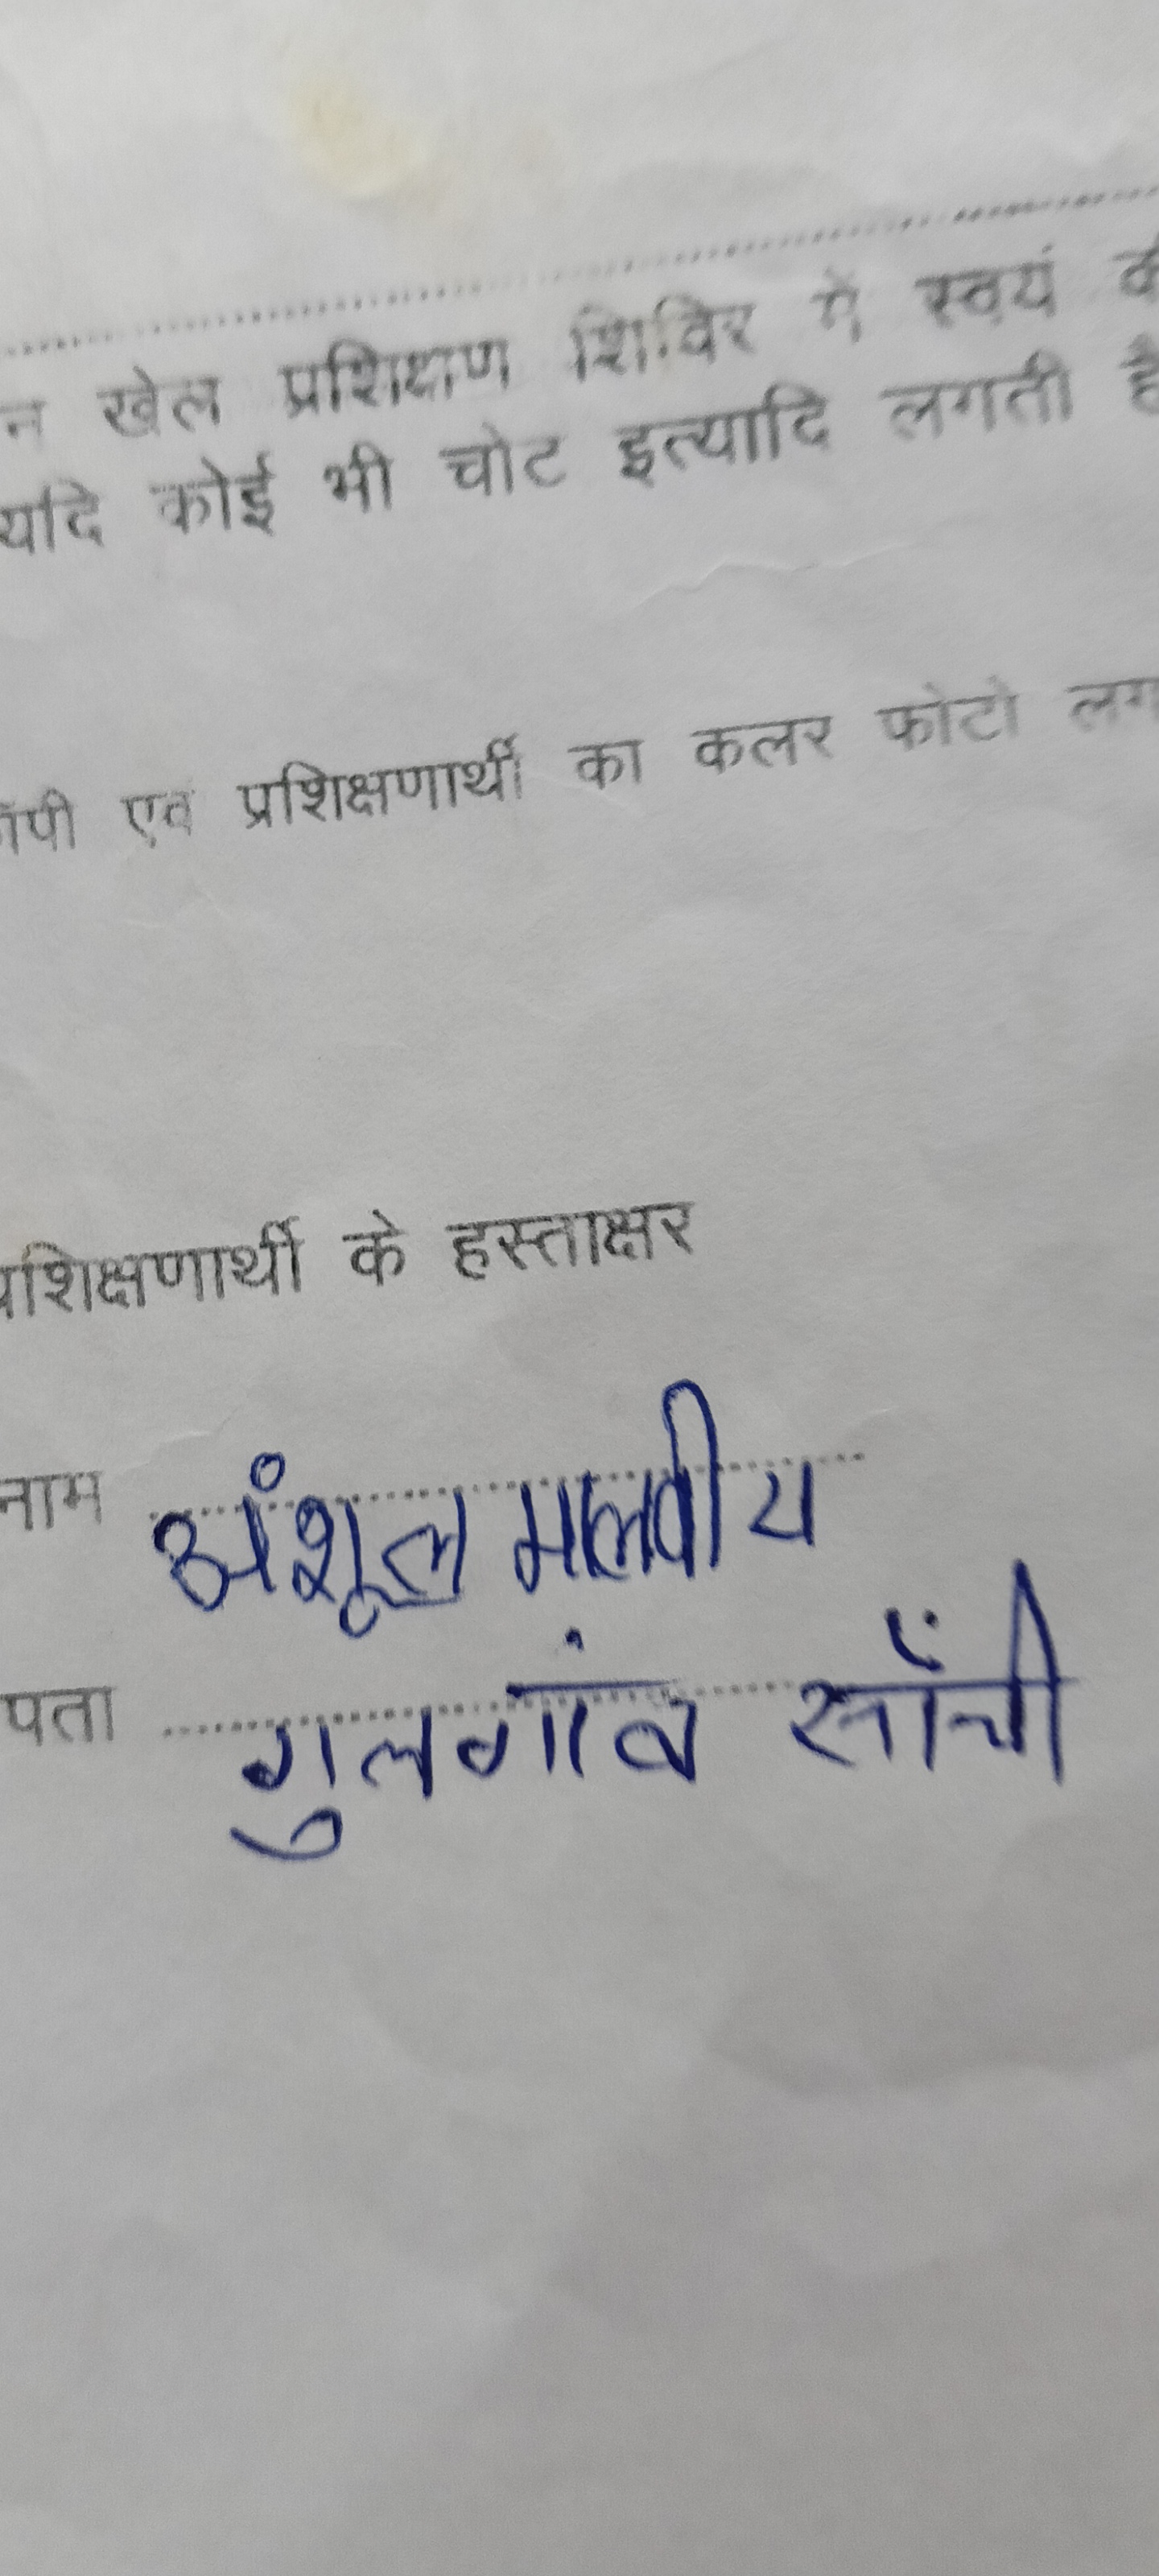 न खेल प्रशिक्षण शिविर में स्वयं की
यदि कोई भी चोट इत्यादि लगती है
एवं प्रशिक्षणार्थी का कलर फोटो लग
प्रशिक्षणार्थी के हस्ताक्षर
नाम अंशूल मालवीय
पता गुलगांव साँची